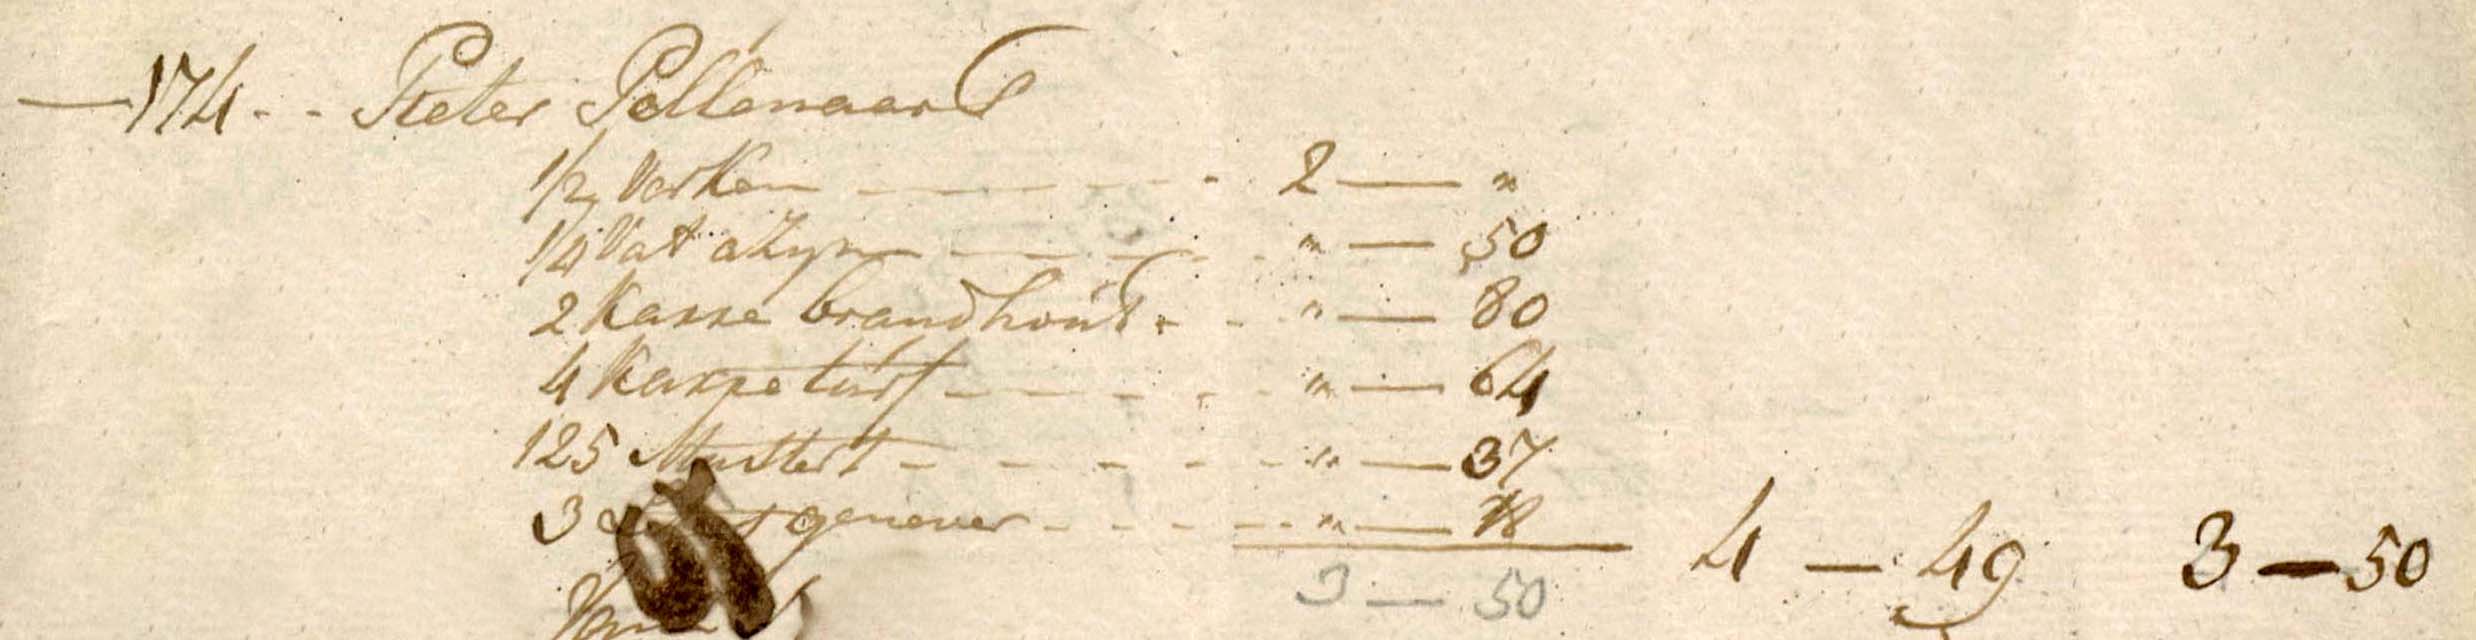 — 174 - - Pieter Pollenaar
1/2 Varken — — - - - 2 — "
1/4 Vat azyn — — - - " — 50
2 Kasse brandhout - - " — 80
4 Karpe turf - - - - " — 64
125 Mustert - - - - - " — 37
3 genever - - - - " — 18
3 — 50 4 — 49 3 — 50